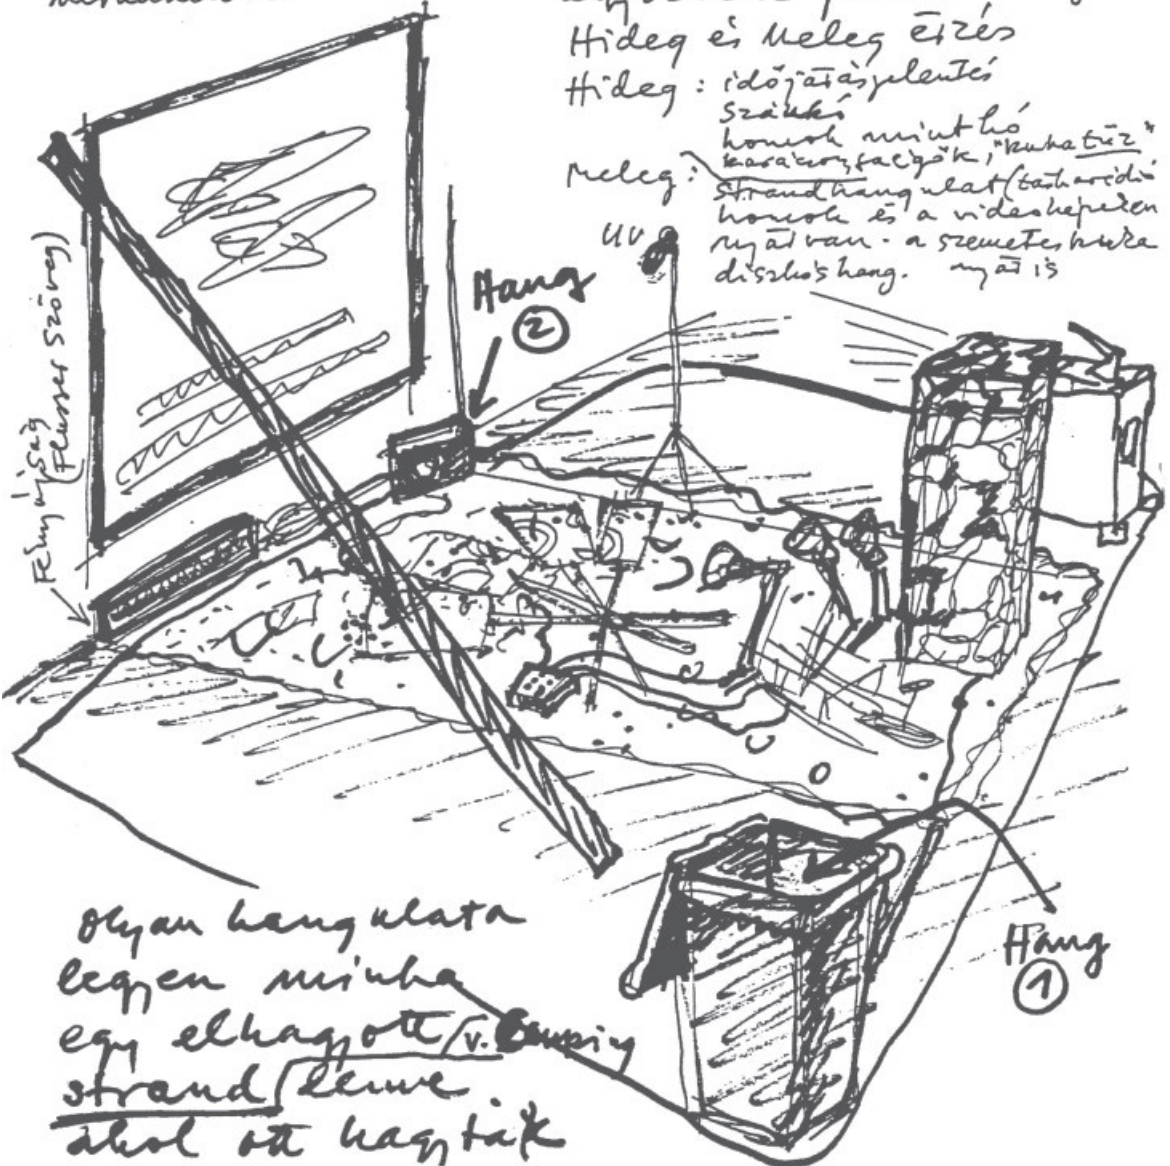 Hideg és meleg érzés
Hideg: időjárásjelentés
szánkó
homok mint hó
karácsonyfaégők, "kuka tűz"
Meleg: strandhangulat (táskarádió
homok és a videoképeken
nyár van - a szemeteskuka
diszkós hang. nyár is
UV
Hang
2
Fényújság
(Flusser szöveg)
Hang
1
olyan hangulata
legyen mintha
egy elhagyott /v. Camping
strand/ lenne
ahol ott hagyták